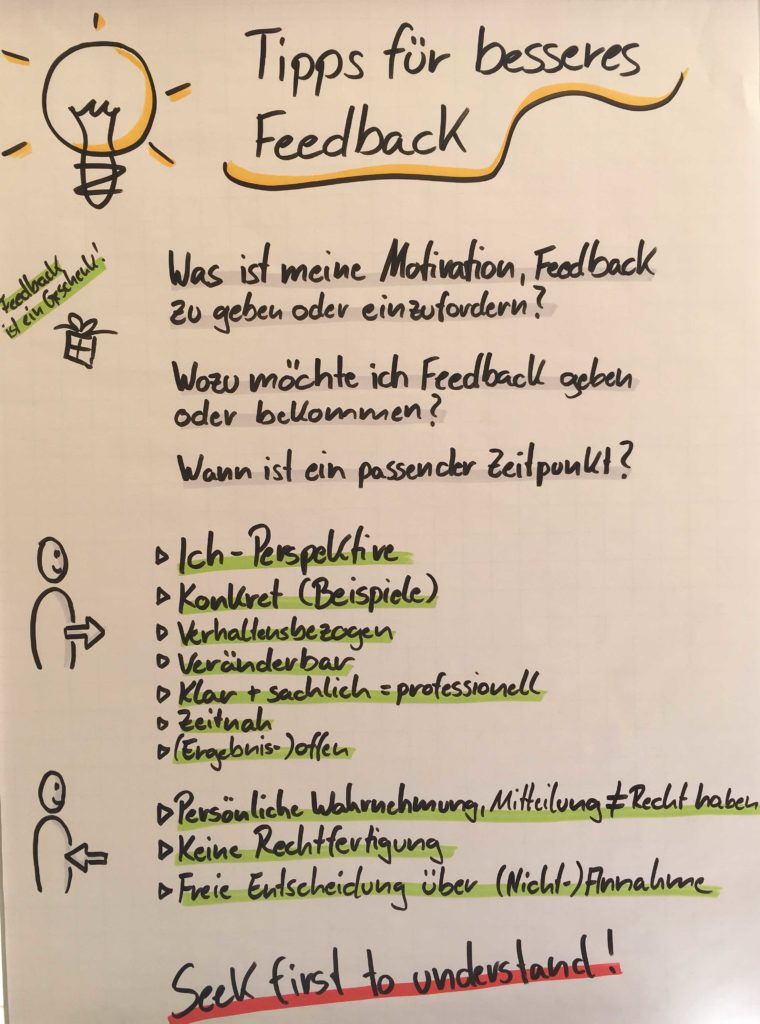 Tipps für besseres
Feedback
Feedback
ist ein Geschenk!
Was ist meine Motivation, Feedback
zu geben oder einzufordern?
Wozu möchte ich Feedback geben
oder bekommen?
Wann ist ein passender Zeitpunkt?
▷ Ich-Perspektive
▷ Konkret (Beispiele)
▷ Verhaltensbezogen
▷ Veränderbar
▷ Klar + sachlich = professionell
▷ Zeitnah
▷ (Ergebnis-)offen
▷ Persönliche Wahrnehmung, Mitteilung ≠ Recht haben
▷ Keine Rechtfertigung
▷ Freie Entscheidung über (Nicht-)Annahme
Seek first to understand!